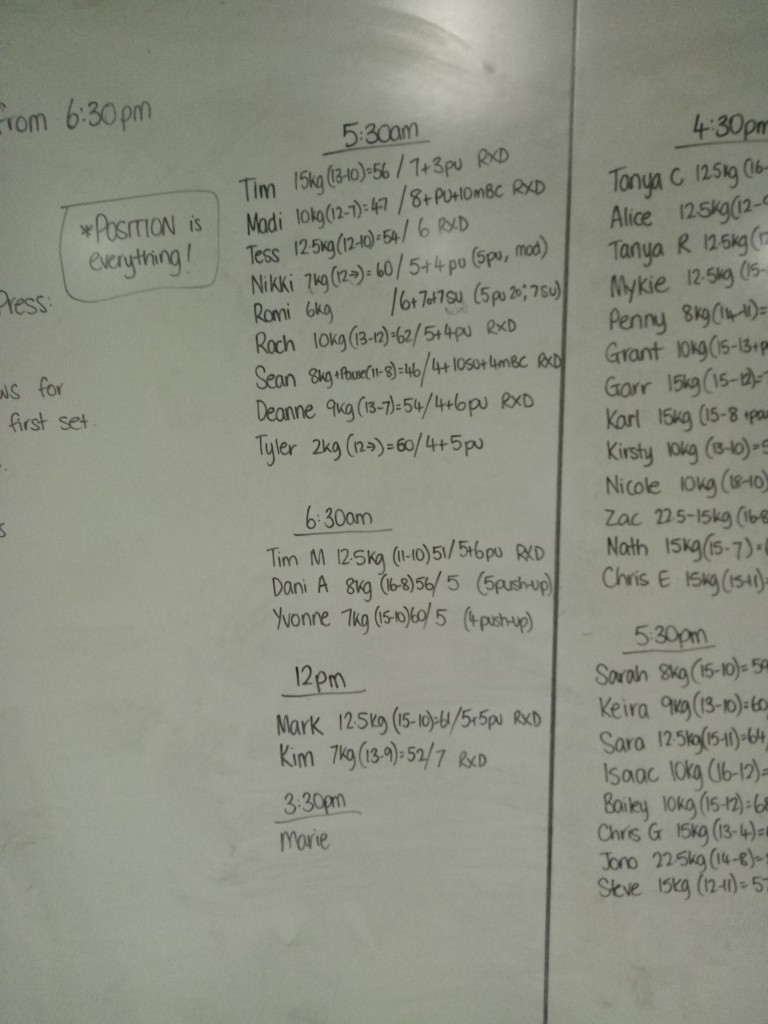 from 6:30pm
*POSITION is
everything!
Press:
ws for
first set.
s
5:30am
Tim 15kg(13-10)=56 / 7+3pu RXD
Madi 10kg(12-7)=47 / 8+PU+10mBC RXD
Tess 12.5kg(12-10)=54/ 6 RXD
Nikki 7kg(12→)=60/ 5+4pu (5pu, mod)
Romi 6kg /6+7su (5pu 20; 7SU)
Rach 10kg(13-12)=62/5+4pu RXD
Sean 8kg+Pause(11-8)=46/4+10SU+4mBC RXD
Deanne 9kg(13-7)=54/4+6pu RXD
Tyler 2kg(12→)=60/4+5pu
6:30am
Tim M 12.5kg (11-10)51/5+6pu RXD
Dani A 8kg (16-8)56/ 5 (5push-up)
Yvonne 7kg(15-10)60/5 (4push-up)
12pm
Mark 12.5kg(15-10)=61/5+5pu RXD
Kim 7kg(13-9)=52/7 RXD
3:30pm
Marie
4:30pm
Tanya C 12.5kg(16-
Alice 12.5kg(12-9
Tanya R 12.5kg(12
Mykie 12.5kg(15-
Penny 8kg(14-11)=
Grant 10kg(15-13+p
Garr 15kg(15-12)=
Karl 15kg(15-8+pau
Kirsty 10kg(13-10)=5
Nicole 10kg(18-10)
Zac 22.5-15kg(16-8
Nath 15kg(15-7)=
Chris E 15kg(15-11)=
5:30pm
Sarah 8kg(15-10)=59
Keira 9kg(13-10)=60
Sara 12.5kg(15-11)=64/
Isaac 10kg(16-12)=
Bailey 10kg(15-12)=68
Chris G 15kg(13-4)=
Jono 22.5kg(14-8)=
Steve 15kg(12-11)=57